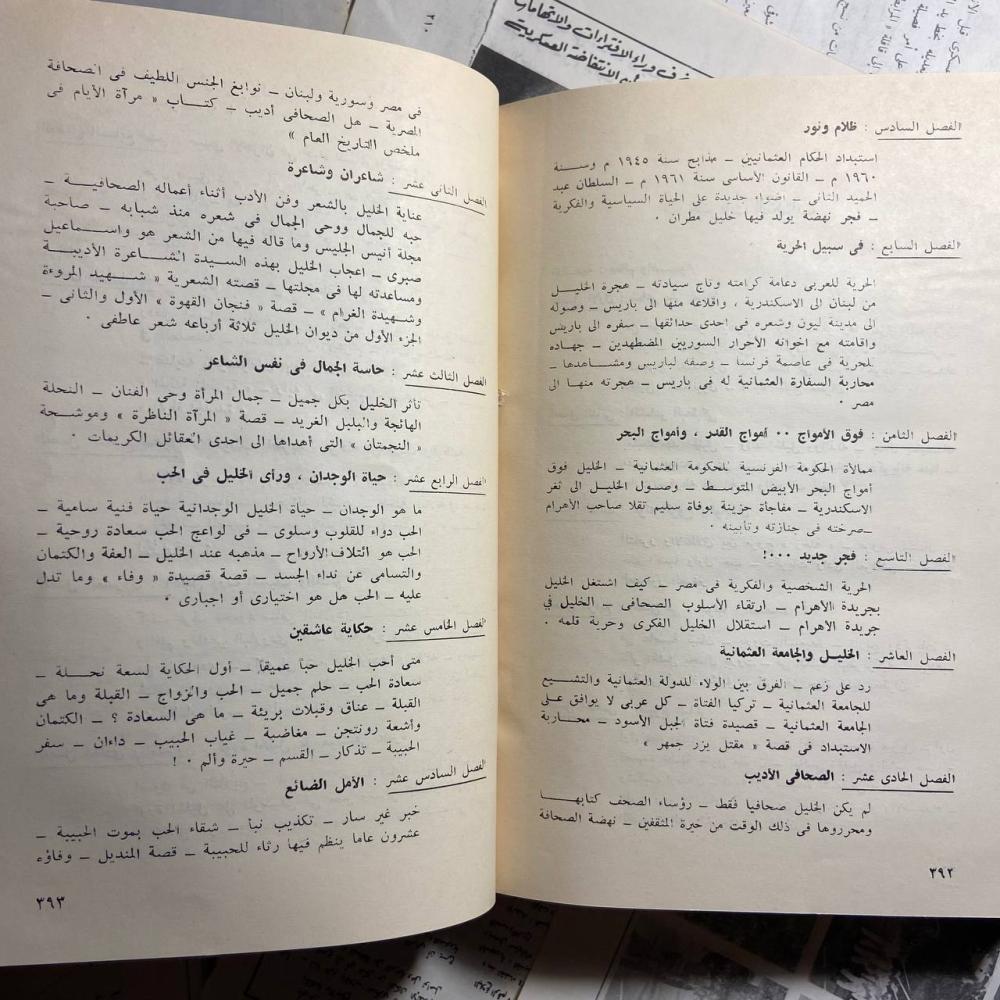 الفصل السادس : ظلام ونور
استبداد الحكام العثمانيين ــ مذابح سنة ١٩٤٥ م وسنة
١٩٦٠ م ــ القانون الأساسى سنة ١٩٦١ م ــ السلطان عبد
الحميد الثانى ــ اضواء جديدة على الحياة السياسية والفكرية
ــ فجر نهضة يولد فيها خليل مطران ٠
الفصل السابع : فى سبيل الحرية
الحرية للعربى دعامة كرامته وتاج سيادته ــ هجرة الخليل
من لبنان الى الاسكندرية ، واقلاعه منها الى باريس ــ وصوله
الى مدينة ليون وشعره فى احدى حدائقها ــ سفره الى باريس
واقامته مع اخوانه الأحرار السوريين المضطهدين ــ جهاده
للحرية فى عاصمة فرنسا ــ وصفه لباريس ومشاهدها ــ
محاربة السفارة العثمانية له فى باريس ــ هجرته منها الى
مصر ٠
الفصل الثامن : فوق الأمواج ٠٠ أمواج القدر ، وأمواج البحر
ممالأة الحكومة الفرنسية للحكومة العثمانية ــ الخليل فوق
أمواج البحر الأبيض المتوسط ــ وصول الخليل الى ثغر
الاسكندرية ــ مفاجأة حزينة بوفاة سليم تقلا صاحب الأهرام
ــ صرخته فى جنازته وتأبينه ٠
الفصل التاسع : فجر جديد ٠٠٠!
الحرية الشخصية والفكرية فى مصر ــ كيف اشتغل الخليل
بجريدة الأهرام ــ ارتقاء الأسلوب الصحافى ــ الخليل في
جريدة الأهرام ــ استقلال الخليل الفكرى وحرية قلمه .
الفصل العاشر : الخليل والجامعة العثمانية
رد على زعم ــ الفرق بين الولاء للدولة العثمانية والتشيع
للجامعة العثمانية ــ تركيا الفتاة ــ كل عربى لا يوافق على
الجامعة العثمانية ــ قصيدة فتاة الجبل الأسود ــ محاربة
الاستبداد فى قصة « مقتل بزر جمهر »
الفصل الحادى عشر : الصحافى الأديب
لم يكن الخليل صحافيا فقط ــ رؤساء الصحف كتابها
ومحرروها فى ذلك الوقت من خيرة المثقفين ــ نهضة الصحافة
٣٩٢
فى مصر وسورية ولبنان ــ نوابغ الجنس اللطيف فى الصحافة
المصرية ــ هل الصحافى أديب ــ كتاب « مرآة الأيام فى
ملخص التاريخ العام »
الفصل الثانى عشر : شاعران وشاعرة
عناية الخليل بالشعر وفن الأدب أثناء أعماله الصحافية ــ
حبه للجمال ووحى الجمال فى شعره منذ شبابه ــ صاحبة
مجلة أنيس الجليس وما قاله فيها من الشعر هو واسماعيل
صبرى ــ اعجاب الخليل بهذه السيدة الشاعرة الأديبة
ومساعدته لها فى مجلتها ــ قصته الشعرية « شهيد المروءة
وشهيدة الغرام » ــ قصة « فنجان القهوة » الأول والثانى ــ
الجزء الأول من ديوان الخليل ثلاثة أرباعه شعر عاطفى ٠
الفصل الثالث عشر : حاسة الجمال فى نفس الشاعر
تأثر الخليل بكل جميل ــ جمال المرأة وحى الفنان ــ النحلة
الهائجة والبلبل الغريد ــ قصة « المرآة الناظرة » وموشحة
« النجمتان » التى أهداها الى احدى العقائل الكريمات ٠
الفصل الرابع عشر : حياة الوجدان ، ورأى الخليل فى الحب
ما هو الوجدان ــ حياة الخليل الوجدانية حياة فنية سامية ــ
الحب دواء للقلوب وسلوى ــ فى لواعج الحب سعادة روحية ــ
الحب هو ائتلاف الأرواح ــ مذهبه عند الخليل ــ العفة والكتمان
والتسامى عن نداء الجسد ــ قصة قصيدة « وفاء » وما تدل
عليه ــ الحب هل هو اختيارى أو اجبارى ٠
الفصل الخامس عشر : حكاية عاشقين
متى أحب الخليل حبا عميقا ــ أول الحكاية لسعة نحلة ــ
سعادة الحب ــ حلم جميل ــ الحب والزواج ــ القبلة وما هى
القبلة ــ عناق وقبلات بريئة ــ ما هى السعادة ؟ ــ الكتمان
وأشعة رونتجن ــ مغاضبة ــ غياب الحبيب ــ داءان ــ سفر
الحبيبة ــ تذكار ــ القسم ــ حيرة وألم ٠ !
الفصل السادس عشر : الأمل الضائع
خبر غير سار ــ تكذيب نبأ ــ شقاء الحب بموت الحبيبة ــ
عشرون عاما ينظم فيها رثاء للحبيبة ــ قصة المنديل ــ وفاؤه
٣٩٣
٢١٠
وراء الافتراءات والاتهامات
الانتفاضة العسكرية